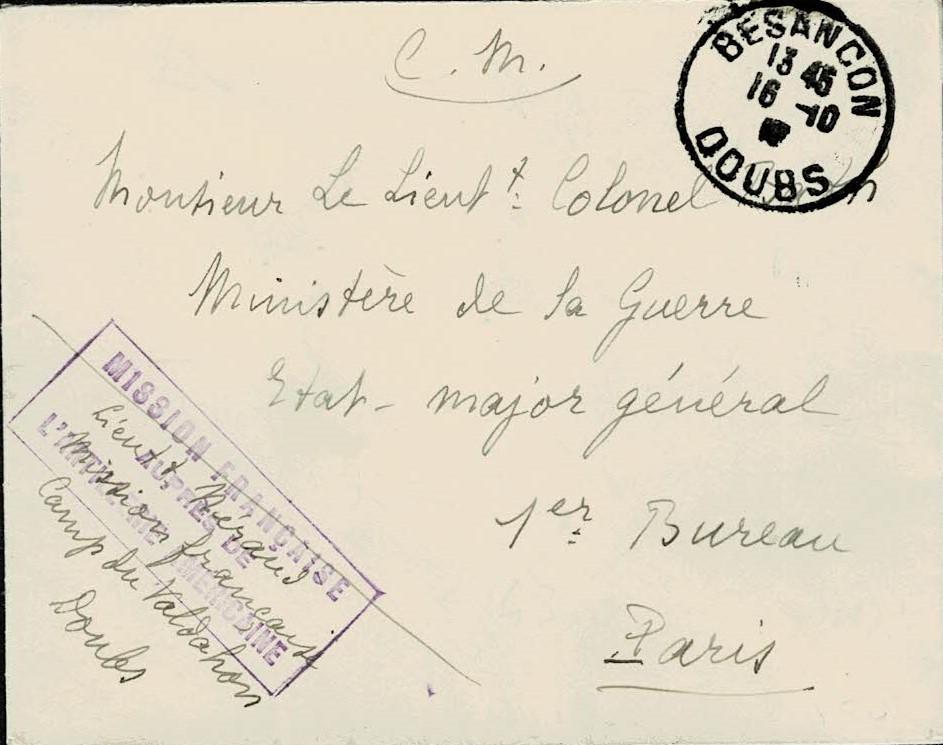 C. M.
BESANCON
13 45
16 -10
DOUBS
Monsieur Le Lieut t. Colonel
Ministère de la Guerre
Etat-major général
1er Bureau
Paris
MISSION FRANÇAISE
AUPRÈS DE
L'ARTILLERIE AMERICAINE
Lieutt.
Mission française
Camp du Valdahon
Doubs